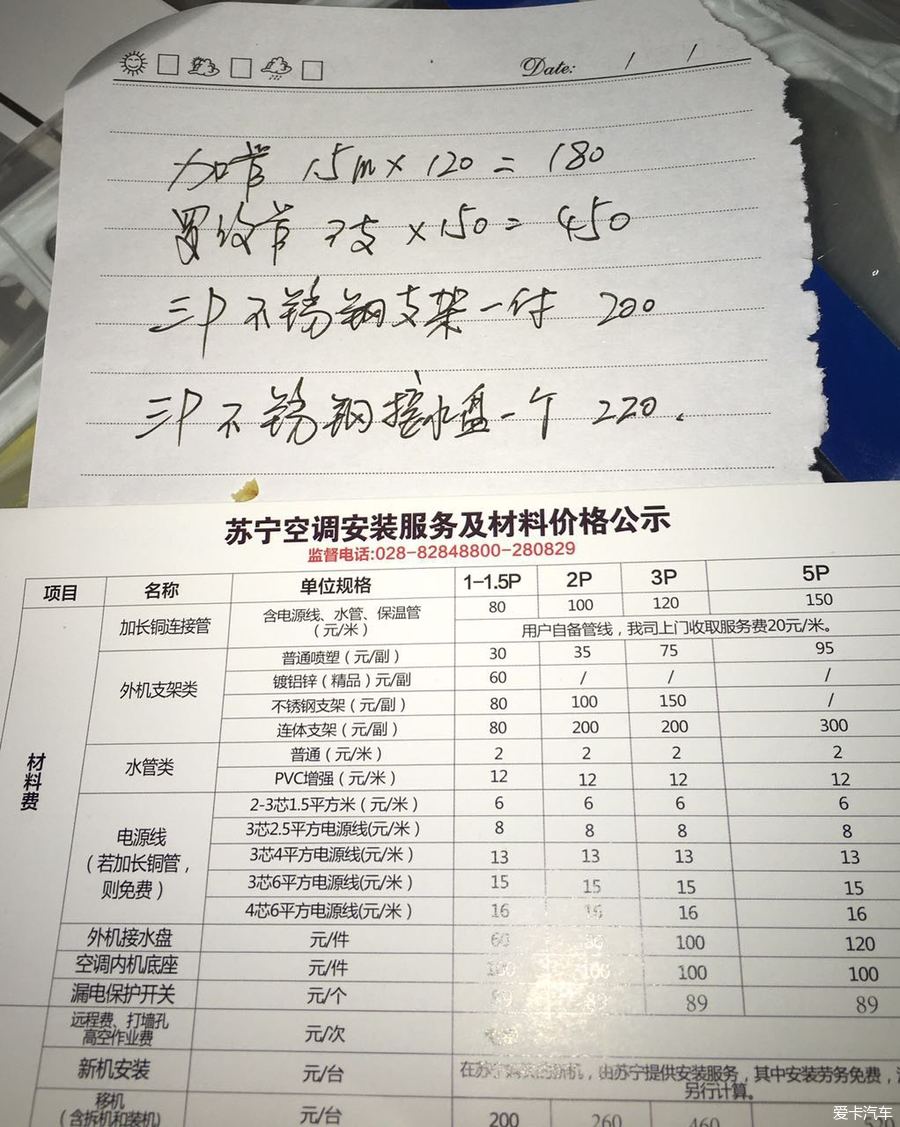 Date: / /
加管 1.5m×120=180
置纹管 3支 ×150=450
三P不锈钢支架一付 200
三P不锈钢接水盘一个 220.
苏宁空调安装服务及材料价格公示
监督电话:028-82848800-280829
项目 名称 单位规格 1-1.5P 2P 3P 5P
材料费
加长铜连接管 含电源线、水管、保温管（元/米） 80 100 120 150
用户自备管线，我司上门收取服务费20元/米。
外机支架类 普通喷塑（元/副） 30 35 75 95
镀铝锌（精品）元/副 60 / / /
不锈钢支架（元/副） 80 100 150 /
连体支架（元/副） 80 200 200 300
水管类 普通（元/米） 2 2 2 2
PVC增强（元/米） 12 12 12 12
电源线（若加长铜管，则免费） 2-3芯1.5平方米（元/米） 6 6 6 6
3芯2.5平方电源线(元/米） 8 8 8 8
3芯4平方电源线(元/米） 13 13 13 13
3芯6平方电源线(元/米） 15 15 15 15
4芯6平方电源线(元/米） 16 16 16 16
外机接水盘 元/件 60 80 100 120
空调内机底座 元/件 100 100 100 100
漏电保护开关 元/个 89 89 89 89
远程费、打墙孔 高空作业费 元/次
新机安装 元/台 在苏宁购买的新机，由苏宁提供安装服务，其中安装劳务免费，
另行计算。
移机（含拆机和装机） 元/台 200 260 460
爱卡汽车